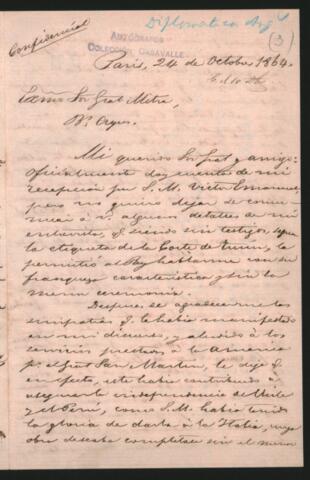 Diplomatica Arg.
(3)
Confidencial
AUTÓGRAFOS
COLECCIÓN CASAVALLE
Paris, 24 de Octubre 1864.
Exmo Sor Gral Mitre,
Bs. Ayres.
Mi querido Sor Gral y amigo:
oficialmente doy cuenta de mi
recepcion por S. M. Victor Emanuel,
pero no quiero dejar de comu-
nicar á V. algunos detalles de mi
entrevista, q. siendo sin testigos, segun
la etiqueta de la Corte de Turin,
permitió al Rey hablarme con su
franqueza caracteristica y sin la
menor ceremonia.
Despues de agradecerme las
simpatias q. le habia manifestado
en mi discurso, y aludido á los
servicios prestados á la America
pr. el Gral San Martin, le dije q.
en efecto, este habia contribuido á
asegurar la independencia de Chile
y el Perú, como S. M. habia tenido
la gloria de darla á la Italia, cuya
obra deseaba completase sin el menor